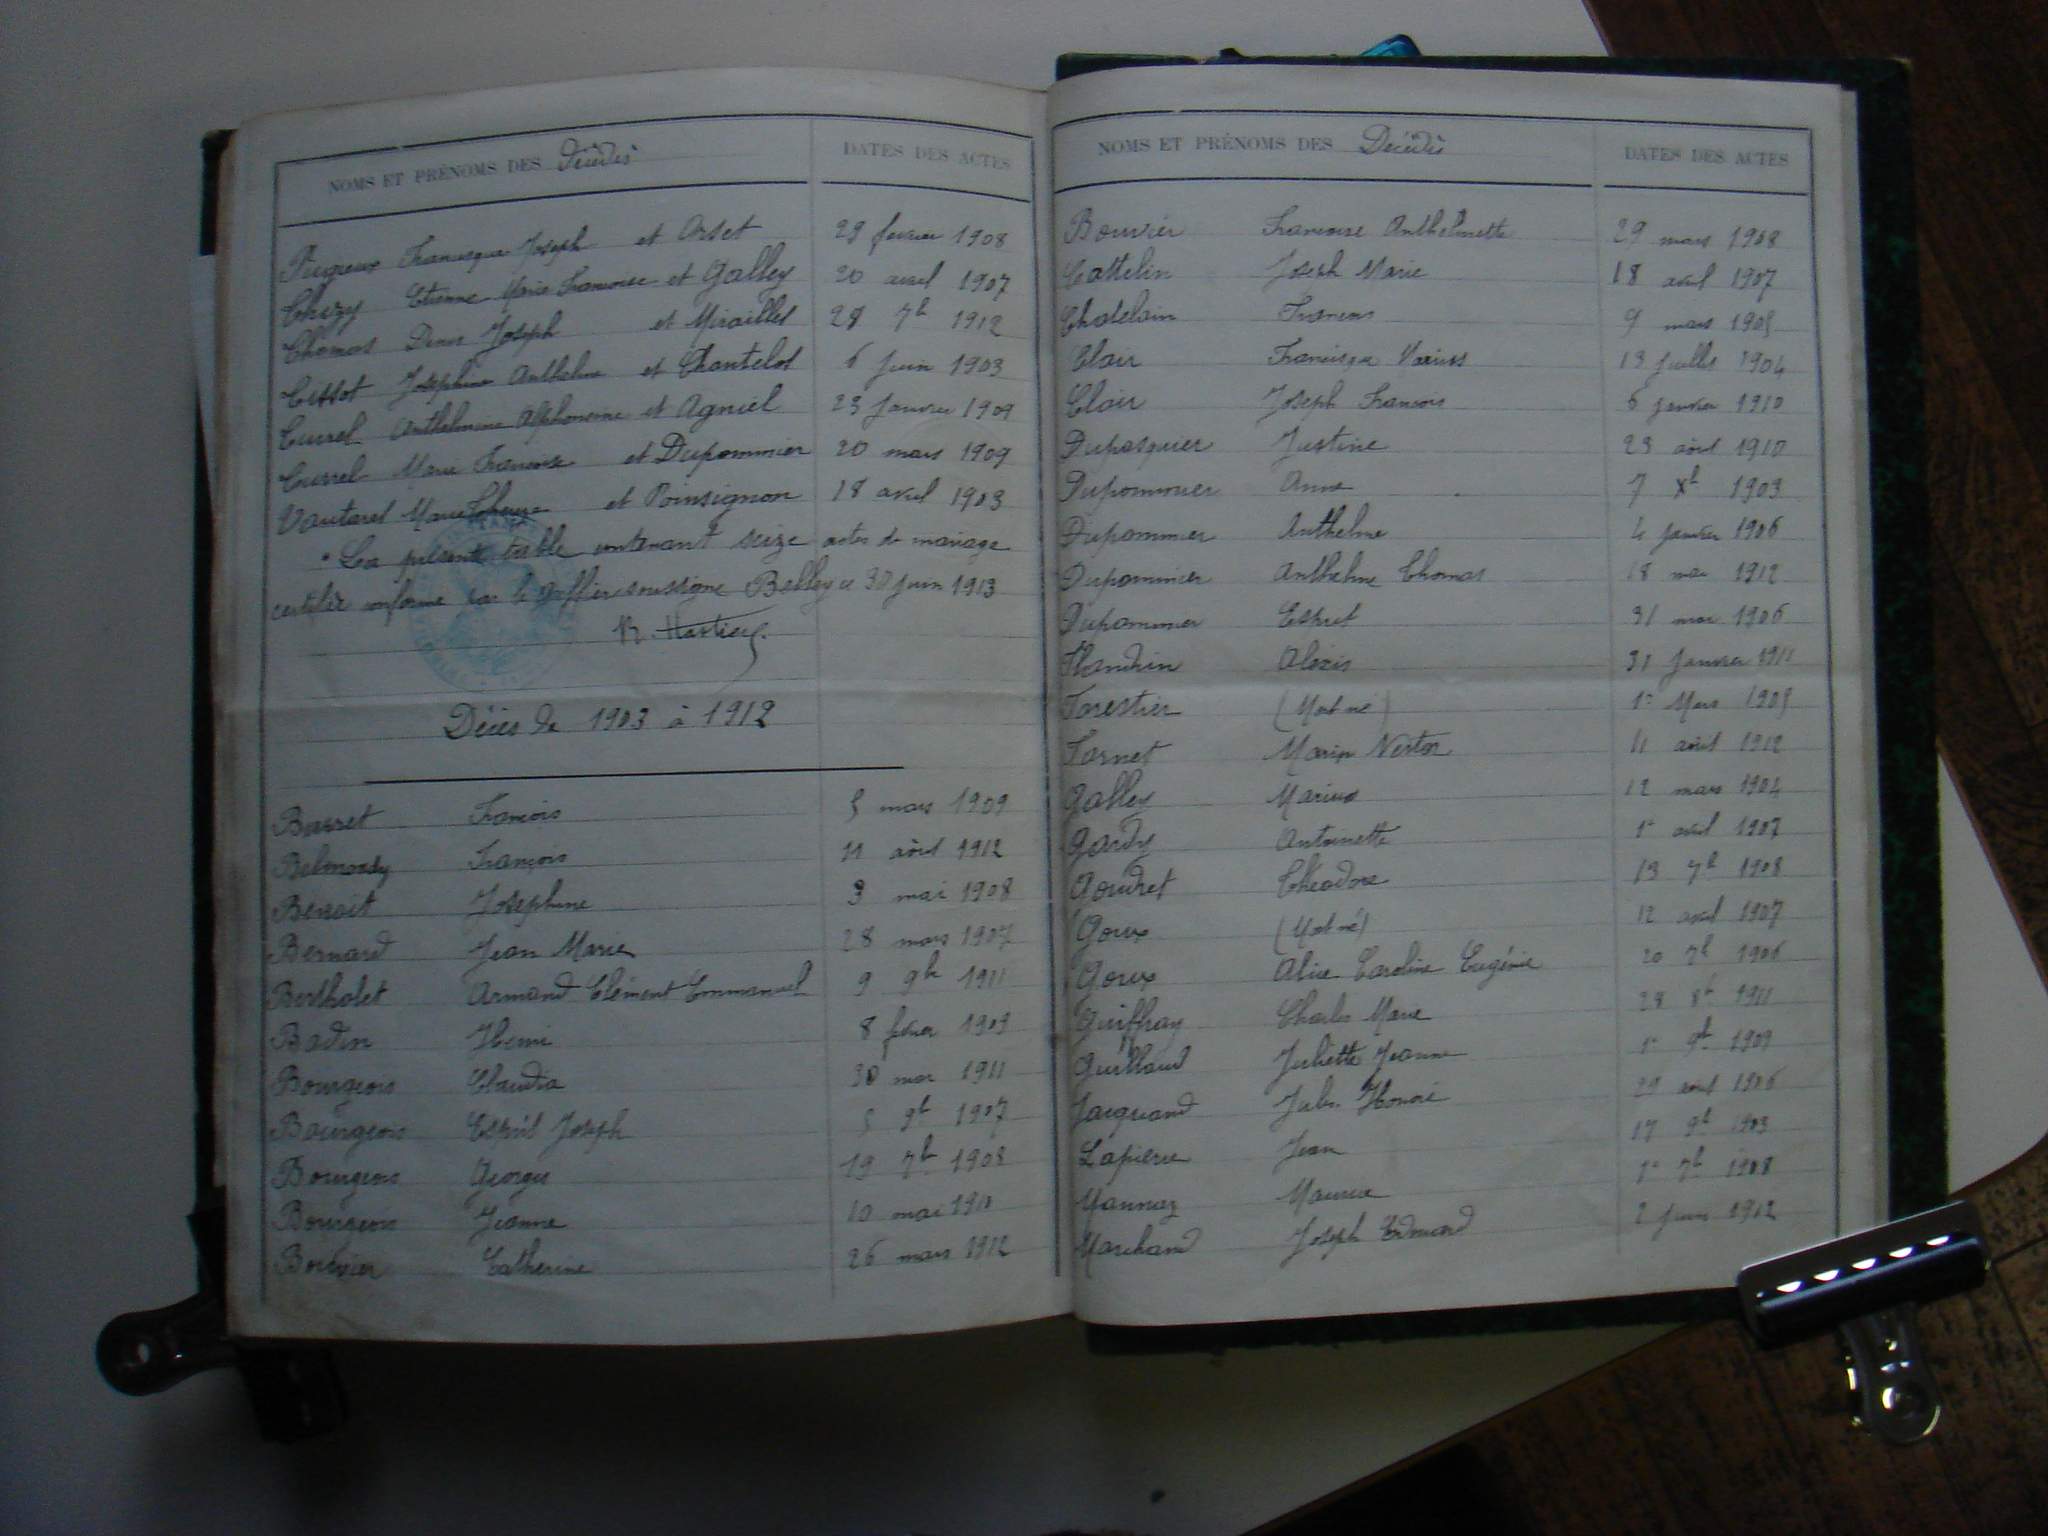 NOMS ET PRÉNOMS DES Décédés DATES DES ACTES
Pugieux Francisque Joseph et Orset 29 février 1908
Chizy Etienne Marie Francoise et Galley 20 avril 1907
Chomas Denis Joseph et Mirailles 28 7b 1912
Cissot Josephine Anthelme et Chantelot 6 juin 1903
Currel Anthelmine Alphonsine et Agniel 23 janvier 1909
Currel Marie Francoise et Dupommier 20 mars 1909
Vautaret Marie et Poinsignon 18 avril 1903
La présente table contenant seize actes de mariage
certifiée conforme par le Greffier soussigné Belley ce 30 juin 1913
Décès de 1903 à 1912
Barret François 5 mars 1909
Belmondy François 11 août 1912
Benoit Josephine 3 mai 1908
Bernard Jean Marie 28 mars 1907
Bertholet Armand Clément Emmanuel 9 9b 1911
Badin Henri 8 février 1909
Bourgeois Claudia 30 mai 1911
Bourgeois Esprit Joseph 5 9b 1907
Bourgeois Georges 19 7b 1908
Bourgeois Jeanne 10 mai 1910
Bouvier Catherine 26 mars 1912
NOMS ET PRÉNOMS DES Décédés DATES DES ACTES
Bouvier Francoise Anthelmette 29 mars 1908
Cattelin Joseph Marie 18 avril 1907
Chatelain Francois 9 mars 1905
Clair Francisque Marius 13 juillet 1904
Clair Joseph Francois 6 janvier 1910
Dupasquier Justine 23 août 1910
Dupommier Anne 7 Xb 1903
Dupommier Anthelme 4 janvier 1906
Dupommier Anthelme Thomas 18 mai 1912
Dupommier Esprit 31 mai 1906
Flandrin Alexis 31 janvier 1911
Forestier (Mort né) 1er Mars 1905
Fornet Marin Nestor 11 août 1912
Galley Marius 12 mars 1904
Gardy Antoinette 1er avril 1907
Goudret Théodore 13 7b 1908
Goux (Mort né) 12 avril 1907
Goux Alice Caroline Eugénie 20 7b 1906
Guiffray Charles Marie 28 8b 1911
Guillaud Juliette Jeanne 1er 9b 1909
Jacquand Jules Honoré 29 août 1906
Lapierre Jean 17 9b 1903
Mannaz Maurice 1er 7b 1908
Marchand Joseph Edmond 2 juin 1912